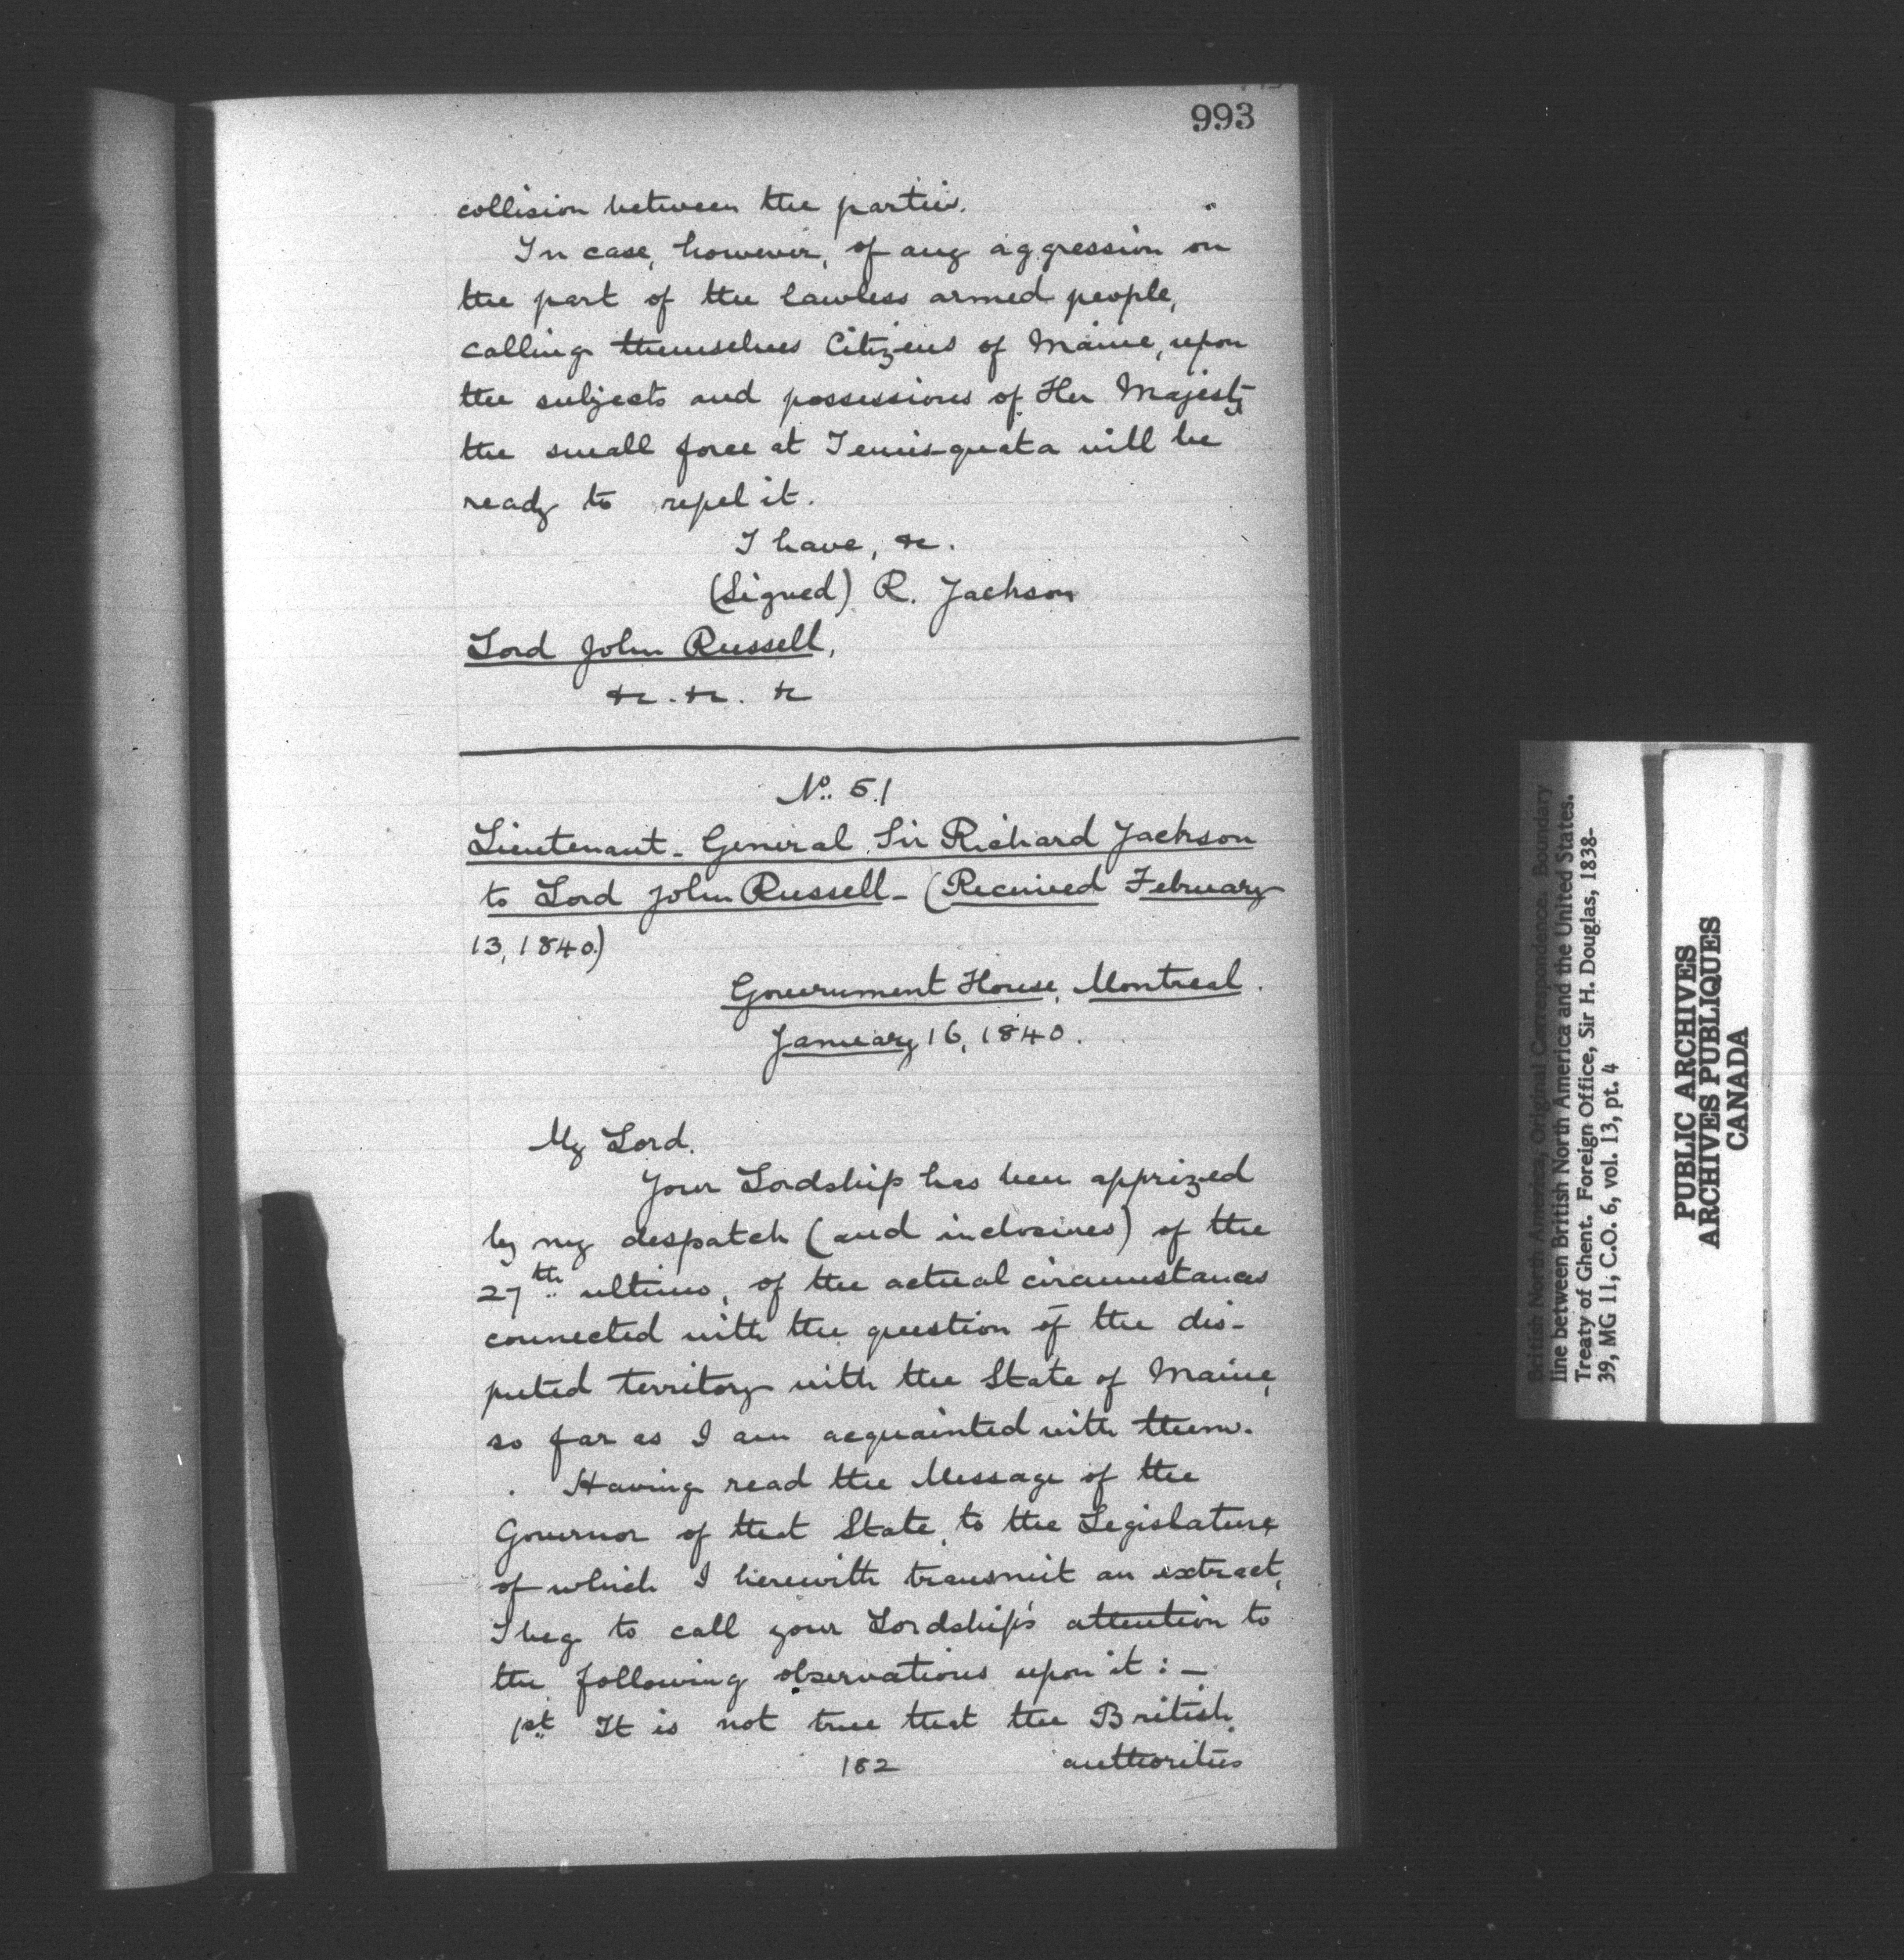 993
collision between the parties.
In case, however, of any aggression on
the part of the lawless armed people,
calling themselves Citizens of Maine, upon
the subjects and possessions of Her Majesty
the small force at Temisquata will be
ready to repel it.
I have, &c.
(Signed) R. Jackson
Lord John Russell,
&c. &c. &c
No. 51
Lieutenant-General Sir Richard Jackson
to Lord John Russell - (Received February
13, 1840.)
Government House, Montreal.
January 16, 1840.
My Lord.
Your Lordship has been apprized
by my despatch (and inclosures) of the
27th ultimo, of the actual circumstances
connected with the question of the dis-
puted territory with the State of Maine,
so far as I am acquainted with them.
Having read the Message of the
Governor of that State, to the Legislature,
of which I herewith transmit an extract,
I beg to call your Lordship's attention to
the following observations upon it: -
1st It is not true that the British
182 authorities
British North America, Original Correspondence. Boundary
line between British North America and the United States.
Treaty of Ghent. Foreign Office, Sir H. Douglas, 1838-
39, MG 11, C.O. 6, vol. 13, pt. 4
PUBLIC ARCHIVES
ARCHIVES PUBLIQUES
CANADA